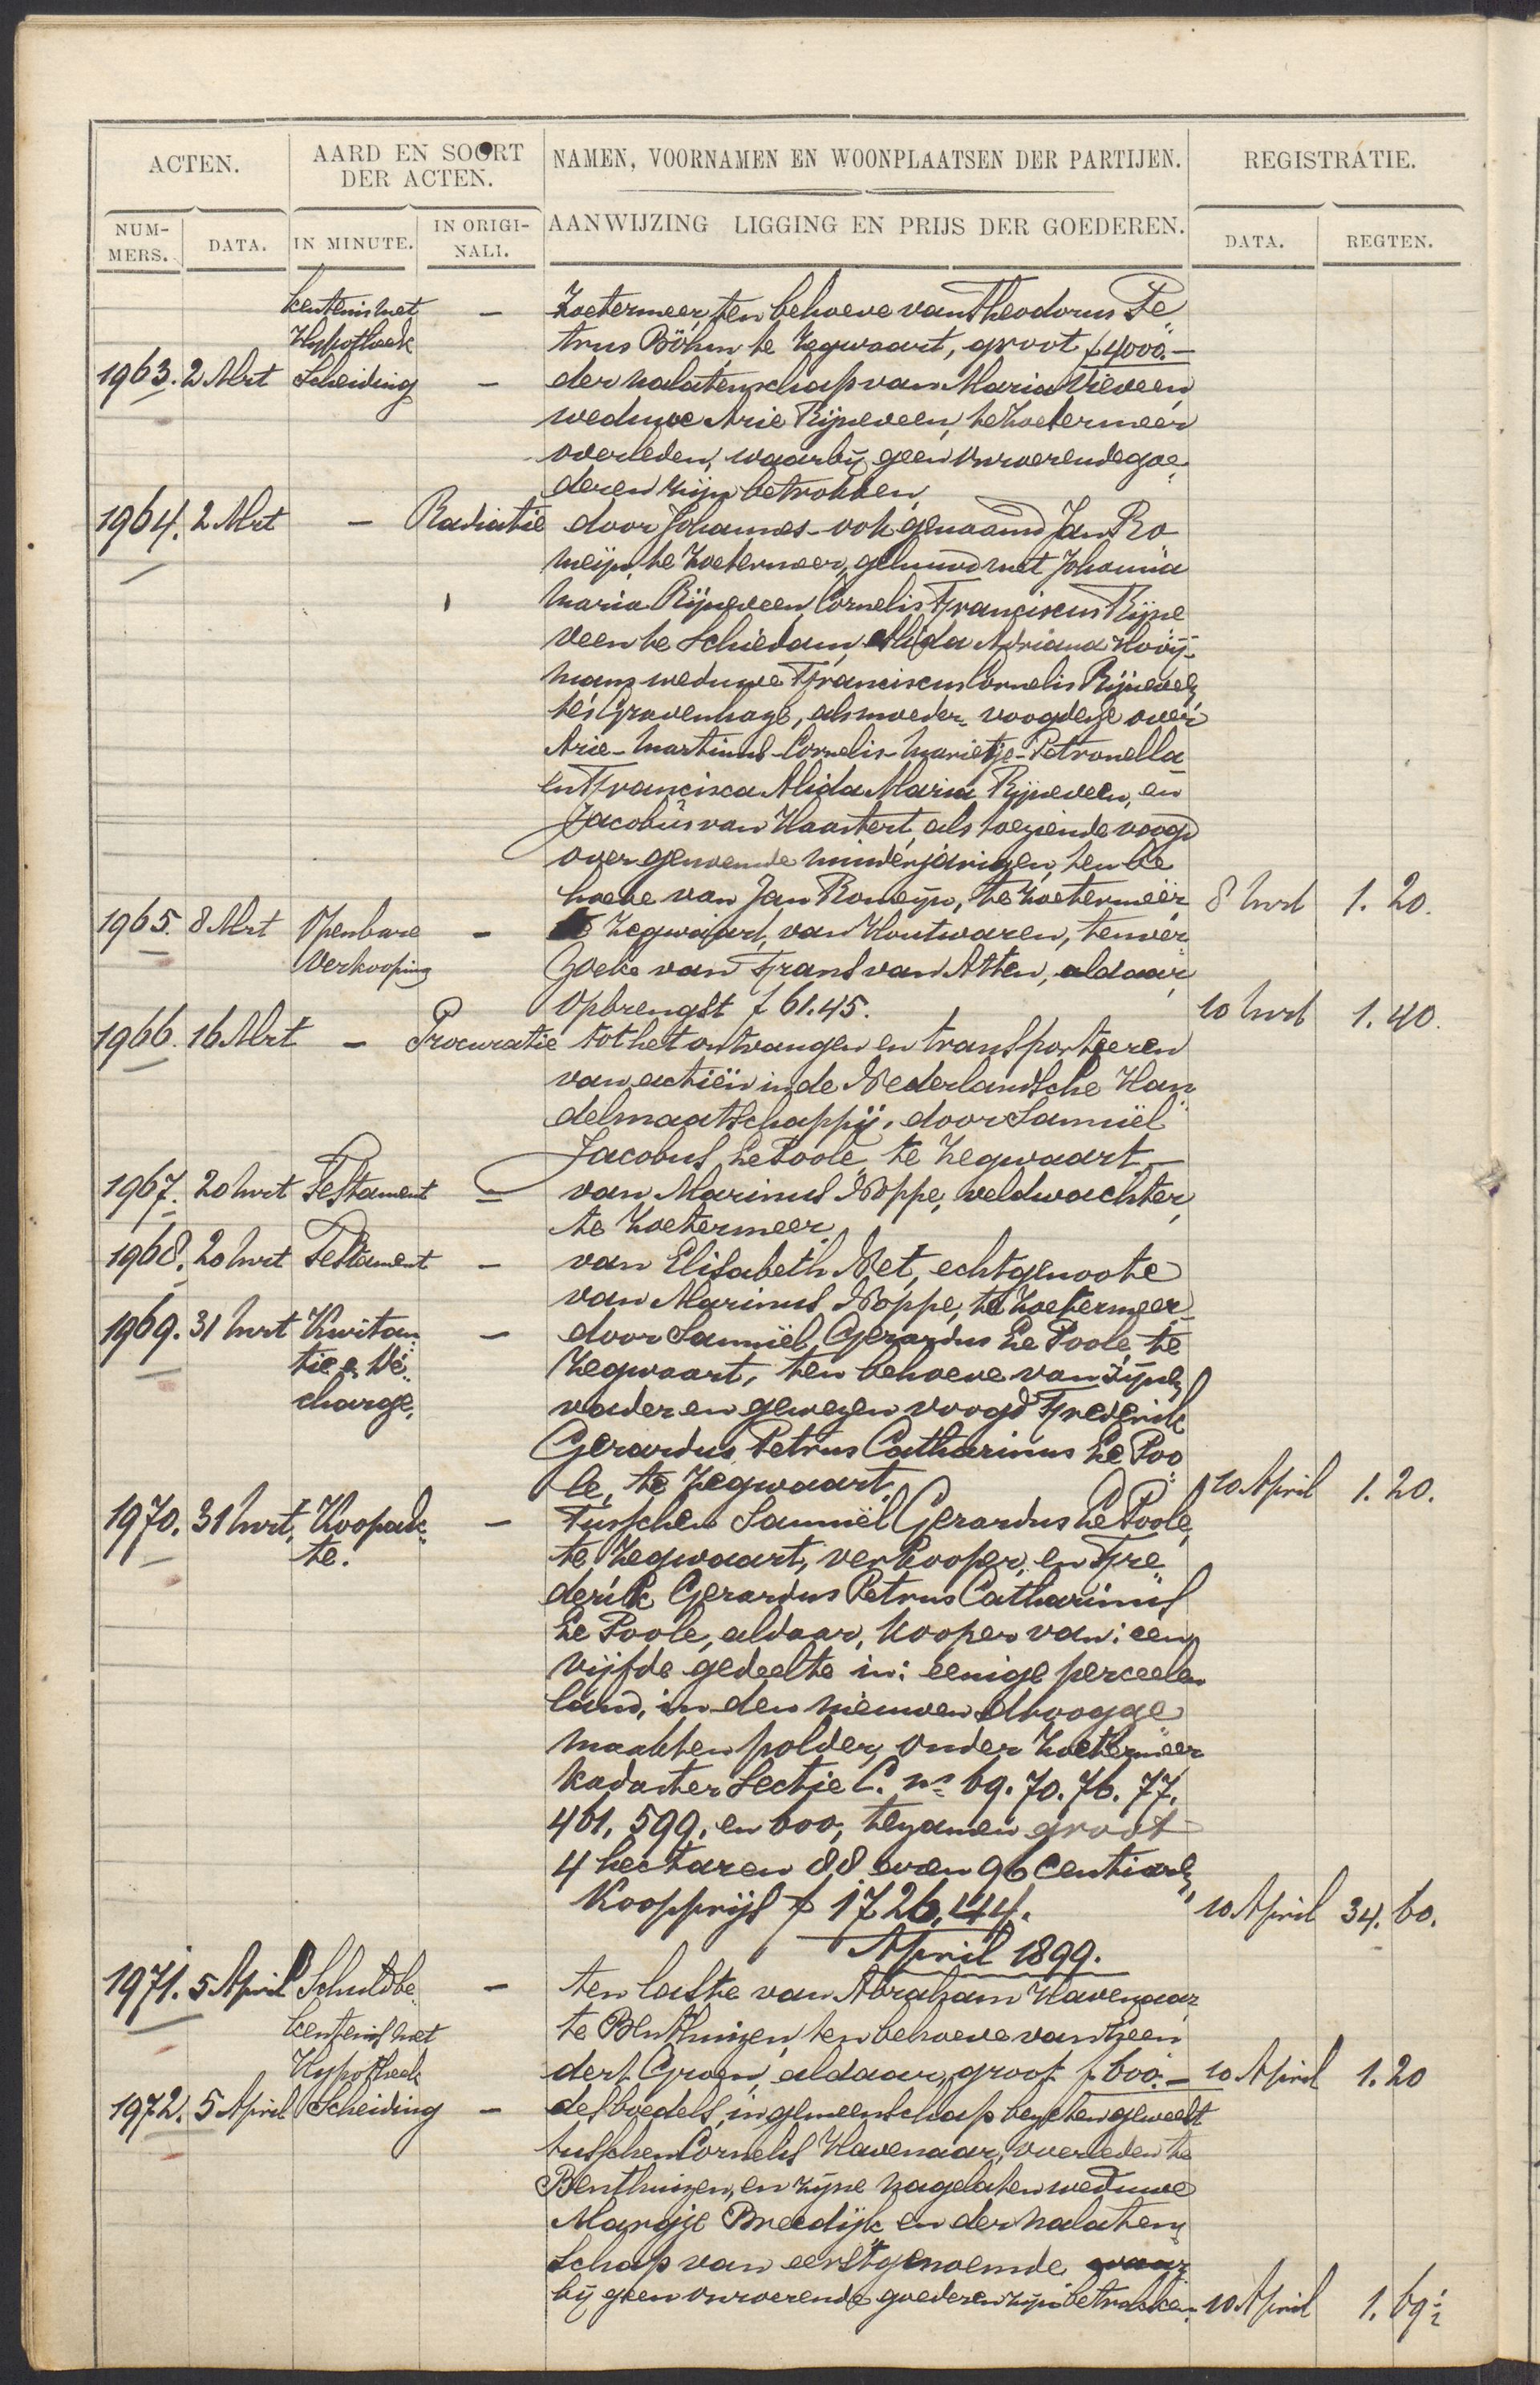 ACTEN.
AARD EN SOORT DER ACTEN.
NAMEN, VOORNAMEN EN WOONPLAATSEN DER PARTIJEN.
REGISTRATIE.
NUM-MERS.
DATA.
IN MINUTE.
IN ORIGI-NALI.
AANWIJZING LIGGING EN PRIJS DER GOEDEREN.
DATA.
REGTEN.
kentenis met - Zoetermeer, ten behoeve van Theodorus Pe
Hypotheek trus Böhm, te Zegwaart, groot f 4000.-
1963. 2 Mrt Scheiding - der nalatenschap van Maria Vieveen,
weduwe Arie Rijneveen, te Zoetermeer
overleden, waarbij geen onroerende goe
deren zijn betrokken.
1964. 2 Mrt - Radiatie door Johannes - ook genaamd Jan Ro
meijn, te Zoetermeer, gehuwd met Johanna
Maria Rijneveen, Cornelis Franciscus Rijne
veen te Schiedam, Alida Adriana Hooij-
mans weduwe Franciscus Cornelis Rijneveen,
te 's Gravenhage, als moeder- voogdesse over
Arie-Martinus-Cornelis-Marietje-Petronella
en Francisca Alida Maria Rijneveen, en
Jacobus van Haastert, als toeziende voogd
over genoemde minderjarigen, ten be
hoeve van Jan Romeijn, te Zoetermeer, 8 Mrt 1. 20.
1965. 8 Mrt Openbare - te Zegwaart, van Houtwaren, ten ver
Verkooping zoeke van Frans van Atten, aldaar,
Opbrengst f 61.45. 10 Mrt 1. 40.
1966. 16 Mrt - Procuratie tot het ontvangen en transporteeren
van actiën in de Nederlandsche Han
delmaatschappij, door Samuël
Jacobus Le Poole, te Zegwaart
1967. 20 Mrt Testament - van Marinus Noppe, veldwachter,
te Zoetermeer.
1968. 20 Mrt Testament - van Elisabeth Net, echtgenoote
van Marinus Noppe, te Zoetermeer
1969. 31 Mrt Kwitan - door Samuël Gerardus Le Poole, te
tie & Dé Zegwaart, ten behoeve van zijnen
charge, vader en gewezen voogd Frederik
Gerardus Petrus Catharinus Le Poo
le, te Zegwaart. 10 April 1. 20.
1970. 31 Mrt, Koopak - Tusschen Samuël Gerardus Le Poole,
te. te Zegwaart, verkooper, en Fre
derik Gerardus Petrus Catharinus
Le Poole, aldaar, kooper van: een
vijfde gedeelte in: eenige perceelen
land, in den nieuwen drooge
maakten polder, onder Zoetermeer
kadaster Sectie C. nos 69. 70. 76. 77.
461, 599, en 600, tezamen groot
4 hectaren 88 aren 96 Centiaren,
Koopprijs f 1726,44. 10 April 34. 60.
April 1899.
1971. 5 April Schuldbe - ten laste van Abraham Havenaar
kentenis met te Benthuizen, ten behoeve van Leen
Hypotheek dert Groen, aldaar, groot f 600.- 10 April 1. 20
1972. 5 April Scheiding - des boedels, in gemeenschap bezeten geweest
tusschen Cornelis Havenaar, overleden te
Benthuizen, en zijne nagelaten weduwe
Margje Breedijk en der nalaten
schap van eerstgenoemde waar
bij geen onroerende goederen zijn betrokken. 10 April 1. 69½